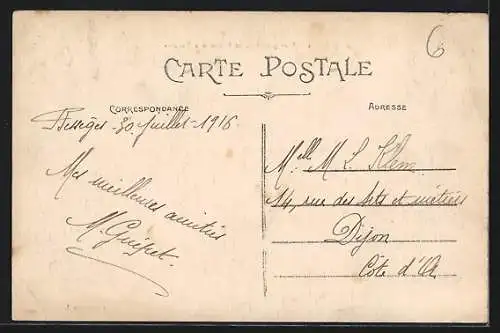 6
CARTE POSTALE
CORRESPONDANCE
ADRESSE
Bessèges 30 Juillet-1916
Mes meilleures amitiés
M. Guipet.
Melle M L Klem
14, rue des Arts et métiers
Dijon
Côte d'Or